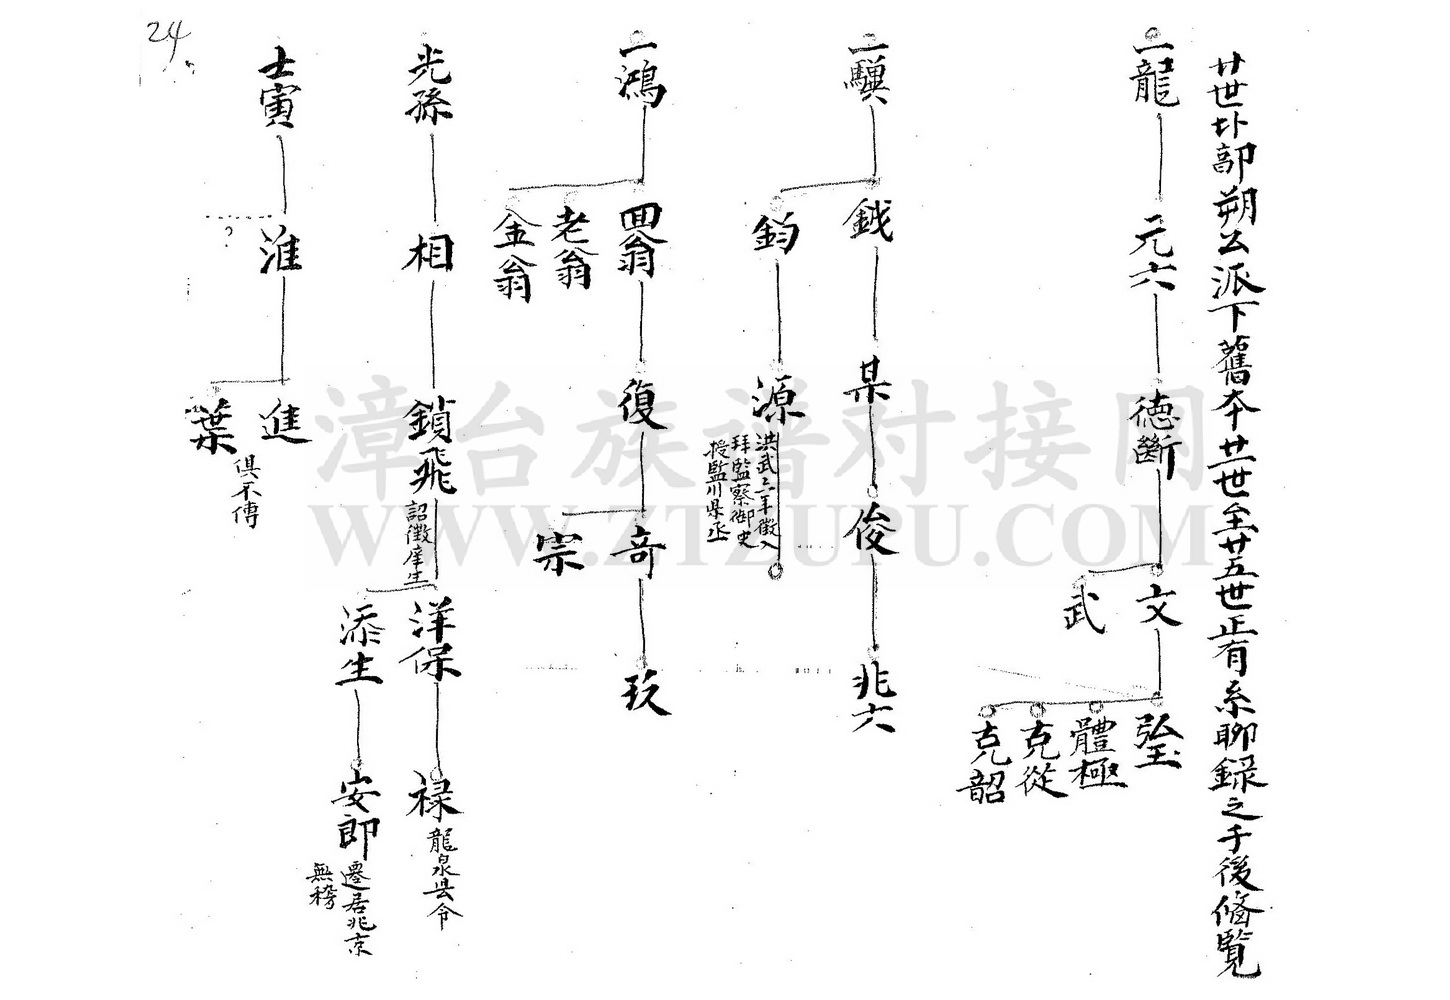 廿世圤部朔公派下舊本廿一世至廿五世正有系聊錄之于後俻覧
一龍
元六
德斷
文
武
弘玉
體極
克從
克韶
一驥
鉞
鈞
某
源
洪武二年徵入
拜監察御史
授監川県丞
俊
兆六
一鴻
四翁
老翁
金翁
復
奇
宗
玖
光孫
相
鎖飛
詔徵庠生
洋保
添生
禄
龍泉县令
安郎
遷居兆京
無稽
士寅
淮
?
進
葉
俱不傳
24
漳台族谱对接网
WWW.ZTZUPU.COM